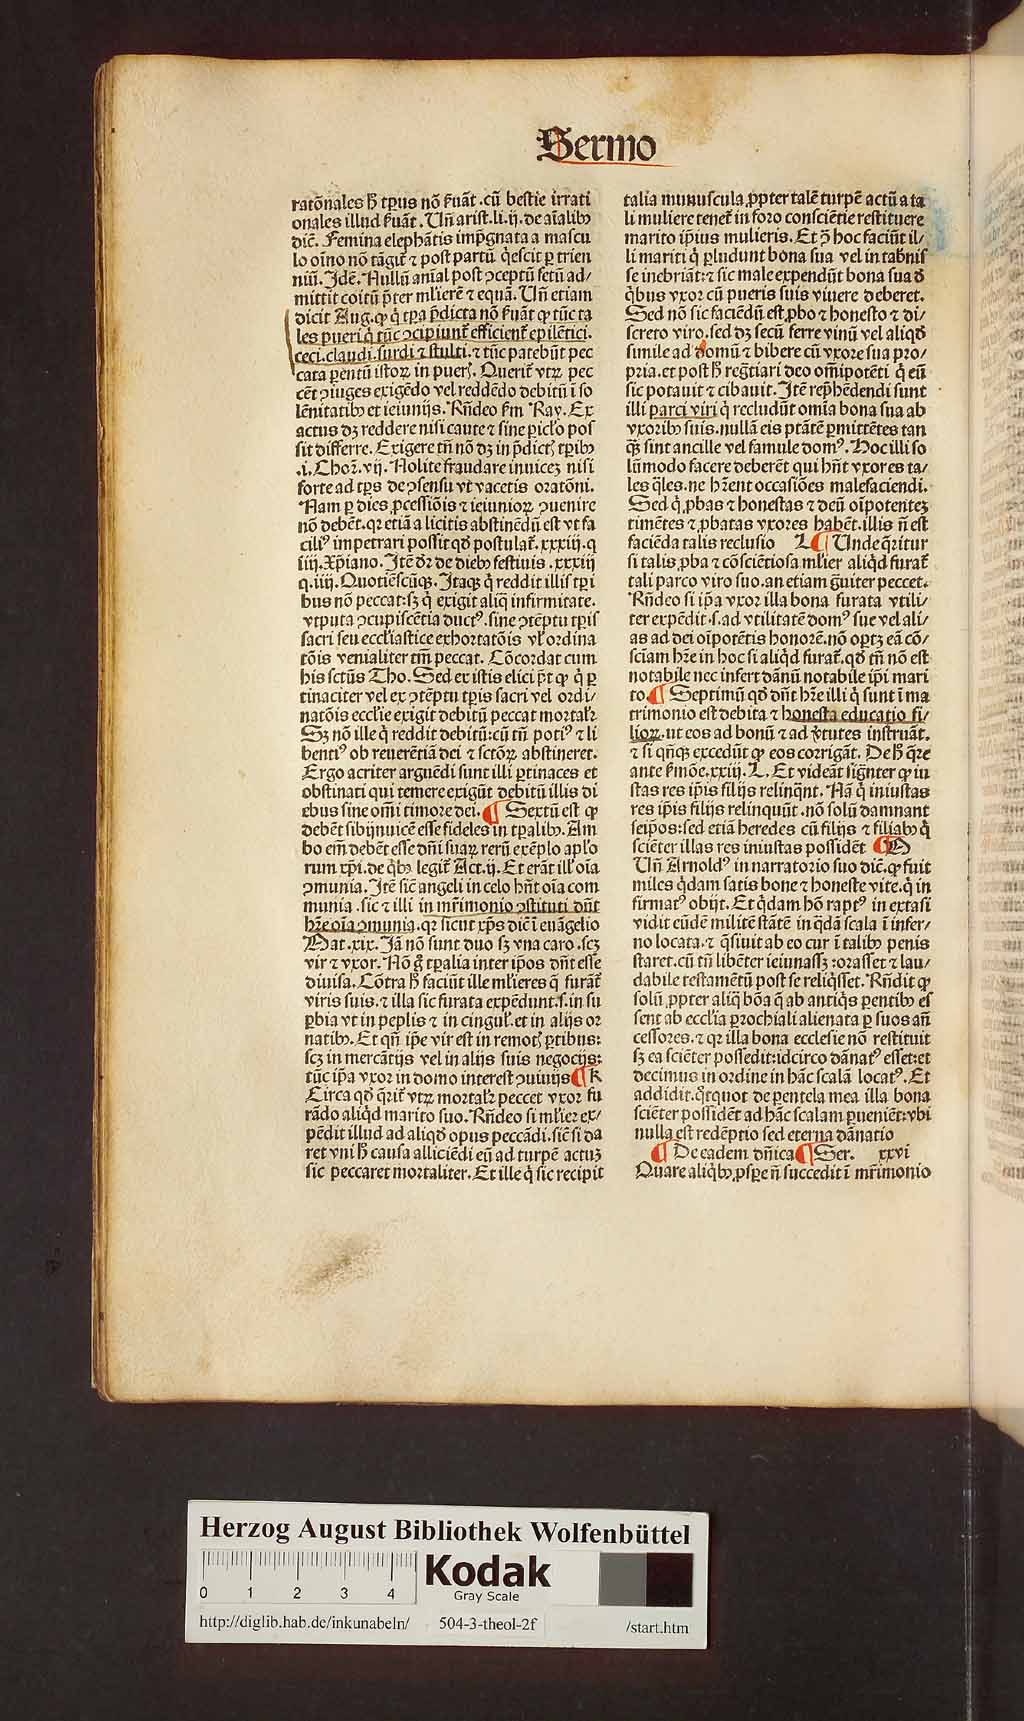 Sermo
ratõnales hᷤ tp̃us nõ ẜuãt .cũ bestie irrati
onales illud ẜuãt . Vñ arist. li .ij. de aĩalibꝰ
dic̃. Femina elephãtis imp̃gnata a mascu
lo oĩno nõ tãgit̃ ⁊ post partũ q̃escit ꝑ trien
niũ. Idẽ. Nullũ aniãl post ꝯceptũ fetũ ad/
mittit coitũ p̃ter ml̃ierẽ ⁊ equã. Vñ etiam
dicit Aug. ꝙ q̃ tp̃a p̃dicta nõ ẜuãt ꝙ tũc ta
les pueri q̃ tũc ꝯcipiunt̃ efficient̃ epilẽtici.
ceci.claudi.surdi ⁊ stulti. ⁊ tũc patebũt pec
cata parentũ istoꝝ in puer̃. Querit̃ vtꝝ pec
cẽt ꝯiuges exigẽdo vel reddẽdo debitũ ĩ so
lẽnitatibꝰ et ieiunijs. Rñdeo ẜm Ray. Ex
actus dꝫ reddere nisi caute ⁊ sine ꝑicl̃o pos
sit differre. Exigere tñ nõ dꝫ in p̃dict̃ tp̃ibꝰ
.i. Chor̃. vij. Nolite fraudare inuicez nisi
forte ad tp̃s de ꝯsensu vt vacetis oratõni.
Nam ꝑ dies ꝓcessiõis ⁊ ieiunioꝝ ꝯuenire
nõ debẽt. qꝛ etiã a licitis abstinẽdũ est vt fa
ciliꝰ impetrari possit qd̃ postulat̃. xxxiij. q
iiij. Xp̃iano. Itẽ dr̃ de diebꝰ festiuis .xxxiij
q .iiij. Quotiẽscũqꝫ. Itaqꝫ q̃ reddit illis tp̃i
bus nõ peccat: sꝫ q̃ exigit aliq̃ infirmitate.
vtputa ꝯcupiscẽtia ductꝰ. sine ꝯtẽptu tp̃is
sacri seu ecclĩastice exhortatõis vl̃ ordina
tõis venialiter tm̃ peccat. Cõcordat cum
his sctũs Tho. Sed ex istis elici p̃t ꝙ q̃ ꝑ
tinaciter vel ex ꝯtẽptu tp̃is sacri vel ordi/
natõis ecclĩe exigit debitũ peccat mortal̃r
Sꝫ nõ ille q̃ reddit debitũ: cũ tñ potiꝰ ⁊ li
bentiꝰ ob reuerẽtiã dei ⁊ sctõꝝ abstineret.
Ergo acriter arguẽdi sunt illi ꝑtinaces et
obstinati qui temere exigũt debitũ illis di
ebus sine om̃i timore dei. ¶ Sextũ est ꝙ
debẽt sibijnuicẽ esse fideles in tp̃alibꝰ. Am
bo em̃ debẽt esse dñi suaꝝ rerũ exẽplo apl̃o
rum xp̃i. de q̃bꝰ legit̃ Act. ij. Et erãt ill̃ oĩa
ꝯmunia. Itẽ sic̃ angeli in celo hñt oĩa com
munia .sic ⁊ illi in mr̃imonio ꝯstituti dñt
hr̃e oĩa ꝯmunia. qꝛ sicut xp̃s dic̃ ĩ euãgelio
Mat. xix. Iã nõ sunt duo sꝫ vna caro. scꝫ
vir ⁊ vxor. Nõ g̃ tp̃alia inter ip̃os dñt esse
diuisa. Cõtra hᷤ faciũt ille ml̃ieres q̃ furãt̃
viris suis. ⁊ illa sic furata expẽdunt .s. in su
ꝑbia vt in peplis ⁊ in cingul̃. et in alijs or
natibꝰ. Et qñ ip̃e vir est in remot̃ ꝑtibus:
scꝫ in mercãtijs vel in alijs suis negocijs:
tũc ip̃a vxor in domo interest ꝯuiuijs ¶ K
Circa qd̃ q̃rit̃ vtꝝ mortal̃r peccet vxor fu
rãdo aliqd̃ marito suo. Rñdeo si ml̃ier ex/
pẽdit illud ad aliqd̃ opus peccãdi. sic̃ si da
ret vni hᷤ causa alliciẽdi eũ ad turpẽ actuꝫ
sic peccaret mortaliter. Et ille q̃ sic recipit
talia munuscula ꝓpter talẽ turpẽ actũ a ta
li muliere tenet̃ in foro consciẽtie restituere
marito ip̃ius mulieris. Et ꝯ̃ hoc faciũt il/
li mariti q̃ ꝑludunt bona sua vel in tab̃nis
se inebriãt: ⁊ sic male expendũt bona sua d̃
q̃bus vxor cũ pueris suis viuere deberet.
Sed nõ sic faciẽdũ est ꝓbo ⁊ honesto ⁊ di/
screto viro. sed dꝫ secũ ferre vinũ vel aliqd̃
simile ad domũ ⁊ bibere cũ vxore sua pro/
pria. et post hᷤ reg̃tiari deo om̃ipotẽti q̃ eũ
sic potauit ⁊ cibauit. Itẽ rep̃hẽdendi sunt
illi parci viri q̃ recludũt om̃ia bona sua ab
vxoribꝰ suis. nullã eis ptãtẽ ꝑmittẽtes tan
qꝫ̃ sint ancille vel famule domꝰ. Hoc illi so
lũmodo facere deberẽt qui hñt vxores ta/
les q̃les. ne hr̃ent occasiões malefaciendi.
Sed q̃ ꝓbas ⁊ honestas ⁊ deũ oĩpotentez
timẽtes ⁊ ꝓbatas vxores habẽt. illis ñ est
faciẽda talis reclusio L ¶ Vnde q̃ritur
si talis ꝓba ⁊ cõsciẽtiosa ml̃ier aliqd̃ furat̃
tali parco viro suo. an etiam g̃uiter peccet.
Rñdeo si ip̃a vxor illa bona furata vtili/
ter expẽdit .s. ad vtilitatẽ domꝰ sue vel ali/
as ad dei oĩpotẽtis honorẽ. nõ oportꝫ eã cõ/
sciam hr̃e in hoc si aliqd̃ furat̃. qd̃ tñ nõ est
notabile nec infert dãnũ notabile ip̃i mari
to. ¶ Septimũ qd̃ dñt hr̃e illi q̃ sunt ĩ ma
trimonio est debita ⁊ honesta educatio fi/
lioꝝ. vt eos ad bonũ ⁊ ad v̾tutes instruãt.
⁊ si qñqꝫ excedũt ꝙ eos corrigãt. De hᷤ q̃re
ante ẜmõe .xxiij. L. Et videãt sig̃nter ꝙ iu
stas res ip̃is filijs relinq̃nt. Nã q̃ iniustas
res ip̃is filijs relinquũt. nõ solũ damnant
seip̃os: sed etiã heredes cũ filijs ⁊ filiabꝰ q̃
sciẽter illas res iniustas possidẽt ¶ M
Vñ Arnoldꝰ in narratorio suo dic̃. ꝙ fuit
miles q̃dam satis bone ⁊ honeste vite. q̃ in
firmatꝰ obijt. Et q̃dam hõ raptꝰ in extasi
vidit eũdẽ militẽ stãtẽ in q̃dã scala ĩ infer/
no locata. ⁊ q̃siuit ab eo cur ĩ talibꝰ penis
staret. cũ tñ libẽter ieiunassꝫ: orasset ⁊ lau/
dabile testamẽtũ post se reliq̃sset. Rñdit ꝙ
solũ ꝓpter aliq̃ bõa q̃ ab antiq̃s ꝑentibꝰ es
sent ab ecclĩa ꝑrochiali alienata ꝑ suos añ
cessores. ⁊ qꝛ illa bona ecclesie nõ restituit
sꝫ ea sciẽter possedit: idcirco dãnatꝰ esset: et
decimus in ordine in hãc scalã locatꝰ. Et
addidit. q̃tquot de ꝑentela mea illa bona
sciẽter possidẽt ad hãc scalam ꝑueniẽt: vbi
nulla est redẽptio sed eterna dãnatio
¶ De eadem dñica ¶ Ser. xxvi
Quare aliqbꝰ ꝓspere ñ succedit ĩ mr̃imonio
Herzog August Bibliothek Wolfenbüttel
0 1 2 3 4
Kodak
Gray Scale
http://diglib.hab.de/inkunabeln/ 504-3-theol-2f /start.htm